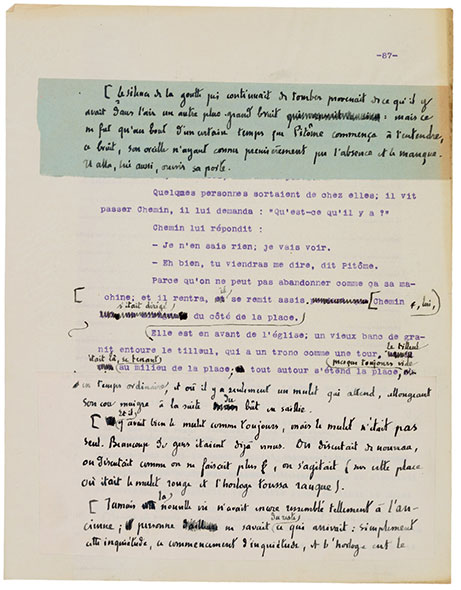 -87-
[ Le silence de la goutte qui continuait de tomber provenait de ce qu'il y
avait dans l'air un autre plus grand bruit : mais ce
ne fut qu'au bout d'un certain temps que Pitôme commença à l'entendre,
ce bruit, son oreille n'ayant connu premièrement que l'absence et le manque.
Il alla, lui aussi, ouvrir sa porte.
Quelques personnes sortaient de chez elles; il vit
passer Chemin, il lui demanda : "Qu'est-ce qu'il y a ?"
Chemin lui répondit :
- Je n'en sais rien; je vais voir.
- Eh bien, tu viendras me dire, dit Pitôme.
Parce qu'on ne peut pas abandonner comme ça sa ma-
[ chine; et il rentra, il se remit assis. [Chemin
s'était dirigé , lui,
du côté de la place.
Elle est en avant de l'église; un vieux banc de gra-
nit entoure le tilleul, qui a un tronc comme une tour, le tilleul
était là, se tenant presque toujours vide
au milieu de la place, tout autour s'étend la place,
en temps ordinaire, et où il y a seulement un mulet qui attend, allongeant
son cou maigre à la suite du bât en saillie.
[ Il y avait bien le mulet comme toujours, mais le mulet n'était pas
seul. Beaucoup de gens étaient déjà venus. On discutait de nouveau,
on discutait comme on ne faisait plus, on s'agitait (sur cette place
où était le mulet rouge et l'horloge toussa rauque).
[ Jamais la nouvelle vie n'avait encore ressemblé tellement à l'an-
cienne; personne du reste ne savait ce qui arrivait : simplement
cette inquiétude, ce commencement d'inquiétude, et l'horloge eut le